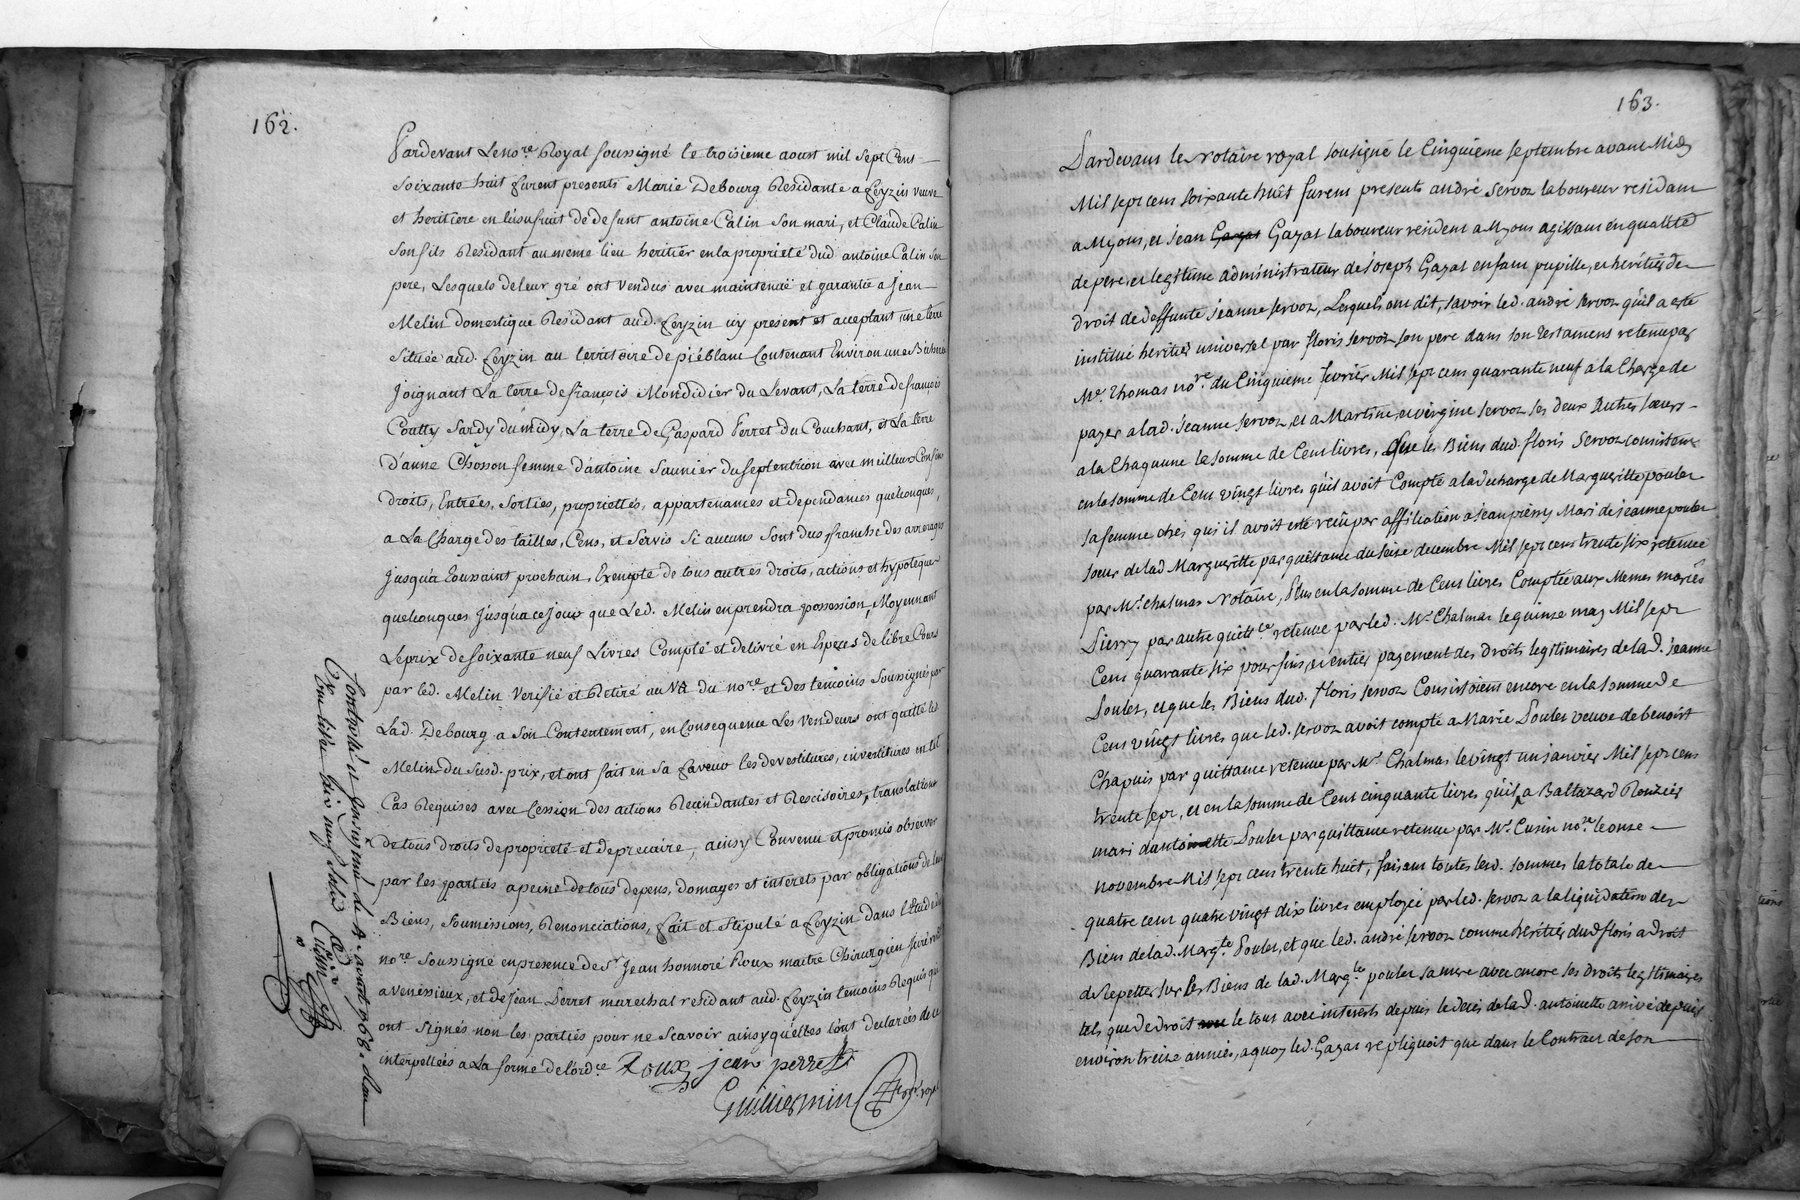 162.
Pardevant Le nore. Royal soussigné le troisieme aoust mil sept Cent
soixante huit furent presents Marie Debourg Residante a feyzin veuve
et heritiere en l'usufruit de defunt antoine Calin son mari, et Claude Calin
son fils Residant au meme lieu heritier en la proprieté dud. antoine Calin son
pere, Lesquels de leur gré ont vendus avec maintenüe et garantie a jean
Melin domestique Residant aud. feyzin icy present et acceptant une terre
située aud. feyzin au territoire de pié blanc Contenant Environ une Bicherée
Joignant La terre de françois Mondidier du Levant, La terre de françois
Coutty Sardy du midy, La terre de Gaspard Perret du Couchant, et La terre
d'anne Chosson femme d'antoine Saunier du septentrion avec meilleurs Confins
droits, Entrées, sorties, propriettés, appartenances et dependances quelconques,
a La Charge des tailles, Cens, et Servis si aucuns sont dus, franche des arrerages
jusqu'a toussaint prochain, Exempte de tous autres droits, actions et hypoteques
quelconques jusqu'a ce jour que Led. Melin en prendra possession, Moyennant
Le prix de soixante neuf Livres Compté et delivré en Especes de libre Cours
par led. Melin Verifié et Retiré au Vû du nore. et des temoins soussignés par
Lad. Debourg a son Contentement, en Consequence Les Vendeurs ont quitté led.
Melin du susd. prix, et ont fait en sa faveur les devestitures, investitures en tel
Cas Requises avec Cession des actions Recindantes et Rescisoires, translation
de tous droits de proprieté et de precaire, ainsy Convenu et promis observer
par les parties a peine de tous depens, domages et interets par obligations de leurs
Biens, soumissions, Renonciations, fait et stipulé a feyzin dans l'Etude du
nore. soussigné en presence de Sr. Jean honnoré Roux maitre Chirurgien juré residant
a venissieux, et de jean Perret marechal residant aud. feyzin temoins Requis qui
ont signés non les parties pour ne scavoir ainsy qu'elles l'ont declarées de ce
interpellées a La forme de l'ordce. Roux jean perret
Guilliermin nore. royal
Controllé et Insinué le 4 aoust 1768. Reçu
Cusin
163.
Pardevant le Notaire royal sousigné le Cinquieme septembre avant Midy
Mil sept cent soixante huit furent presents andré servoz laboureur residant
a Myons, et jean Gayat Gayat laboureur resident a Myons agissant en qualité
de pere et legitime administrateur de joseph Gayat enfant pupille, et heritier de
droit de deffunte jeanne servoz, Lesquels ont dit, savoir led. andré servoz qu'il a esté
institué heritier universel par floris servoz son pere dans son testament retenu par
Me. thomas nore. du Cinquieme fevrier Mil sept cent quarante neuf a la Charge de
payer a lad. jeanne servoz, et a Martine et virgine servoz ses deux autres soeurs
a la Chaquune la somme de Cent livres, Que les Biens dud. floris servoz consistent
en la somme de Cent vingt livres qu'il avoit Compté a la decharge de Margueritte pouler
sa femme chés qui il avoit esté reçû par affiliation a jean pierry Mari de jeanne pouler
soeur de lad Margueritte par quittance du seise decembre Mil sept cens trente six retenue
par Me. Chalmas Notaire, Plus en la somme de Cent livres Comptée aux Memes mariés
Pierry par autre quittce. retenue par led. Me. Chalmas le quinze may Mil sept
Cent quarante six pour fins, et entier payement des droits legitimaires de lad. jeanne
Pouler, et que les Biens dud. floris servoz Consistoient encore en la somme de
Cent vingt livres que led. servoz avoit compté a Marie Pouler veuve de benoist
Chapuis par quittance retenue par Me. Chalmas le vingt un janvier Mil sept cens
trente sept, et en la somme de Cent cinquante livres qu'il a Baltazard Rouzier
mari d'antoinette Pouler par quittance retenue par Me. Cusin nore. le onze
Novembre Mil sept cens trente huit, faisant toutes lesd. sommes la totale de
quatre cent quatre vingt dix livres employée par led. servoz a la liquidation des
Biens de lad. Margte. Pouler, et que led. andré servoz comme heritier dud floris a droit
de repetter sur les Biens de lad. Margte. pouler sa mere avec encore ses droits legitimaires
tels que de droit le tout avec interests depuis le deces de lad. antoinette arrivé depuis
environ treize années, a quoy led. Gayat repliquoit que dans le Contract de son